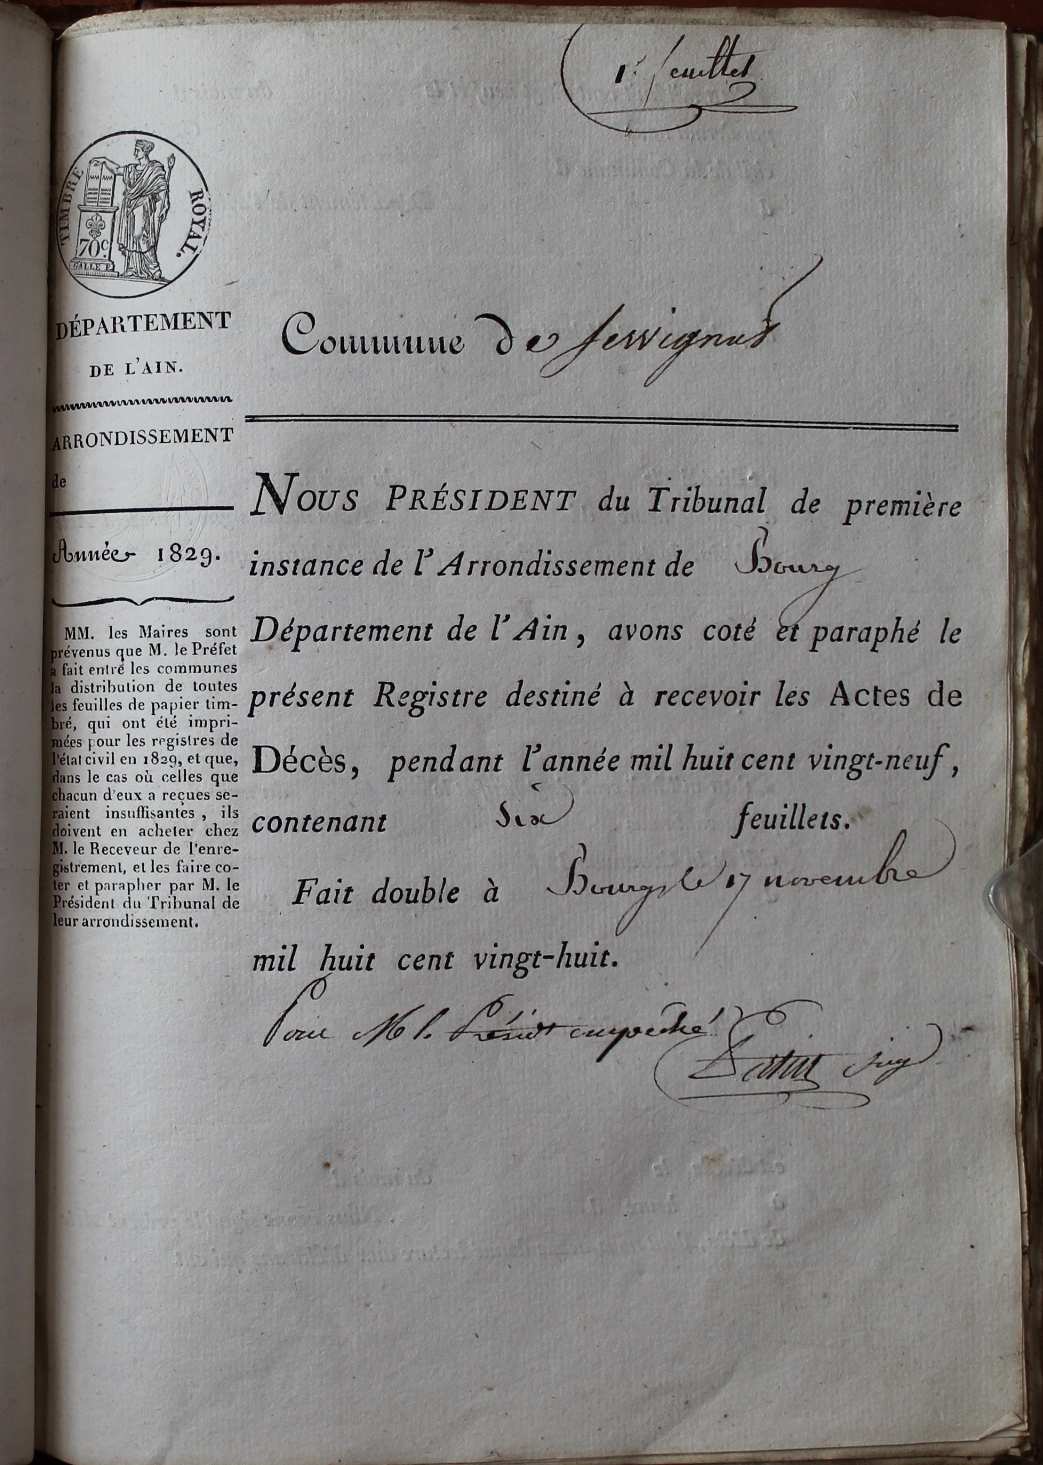 1er feuillet
TIMBRE ROYAL.
70c
GALLE F.
DÉPARTEMENT
DE L'AIN.
ARRONDISSEMENT
de
Année 1829.
MM. les Maires sont
prévenus que M. le Préfet
a fait entre les communes
la distribution de toutes
les feuilles de papier tim-
bré, qui ont été impri-
mées pour les registres de
l'état civil en 1829, et que,
dans le cas où celles que
chacun d'eux a reçues se-
raient insuffisantes, ils
doivent en acheter chez
M. le Receveur de l'enre-
gistrement, et les faire co-
ter et parapher par M. le
Président du Tribunal de
leur arrondissement.
Commune de Servignat
NOUS PRÉSIDENT du Tribunal de première
instance de l'Arrondissement de Bourg
Département de l'Ain, avons coté et paraphé le
présent Registre destiné à recevoir les Actes de
Décès, pendant l'année mil huit cent vingt-neuf,
contenant Six feuillets.
Fait double à Bourg le 17 novembre
mil huit cent vingt-huit.
Pour M. le Présidt empêché
juge